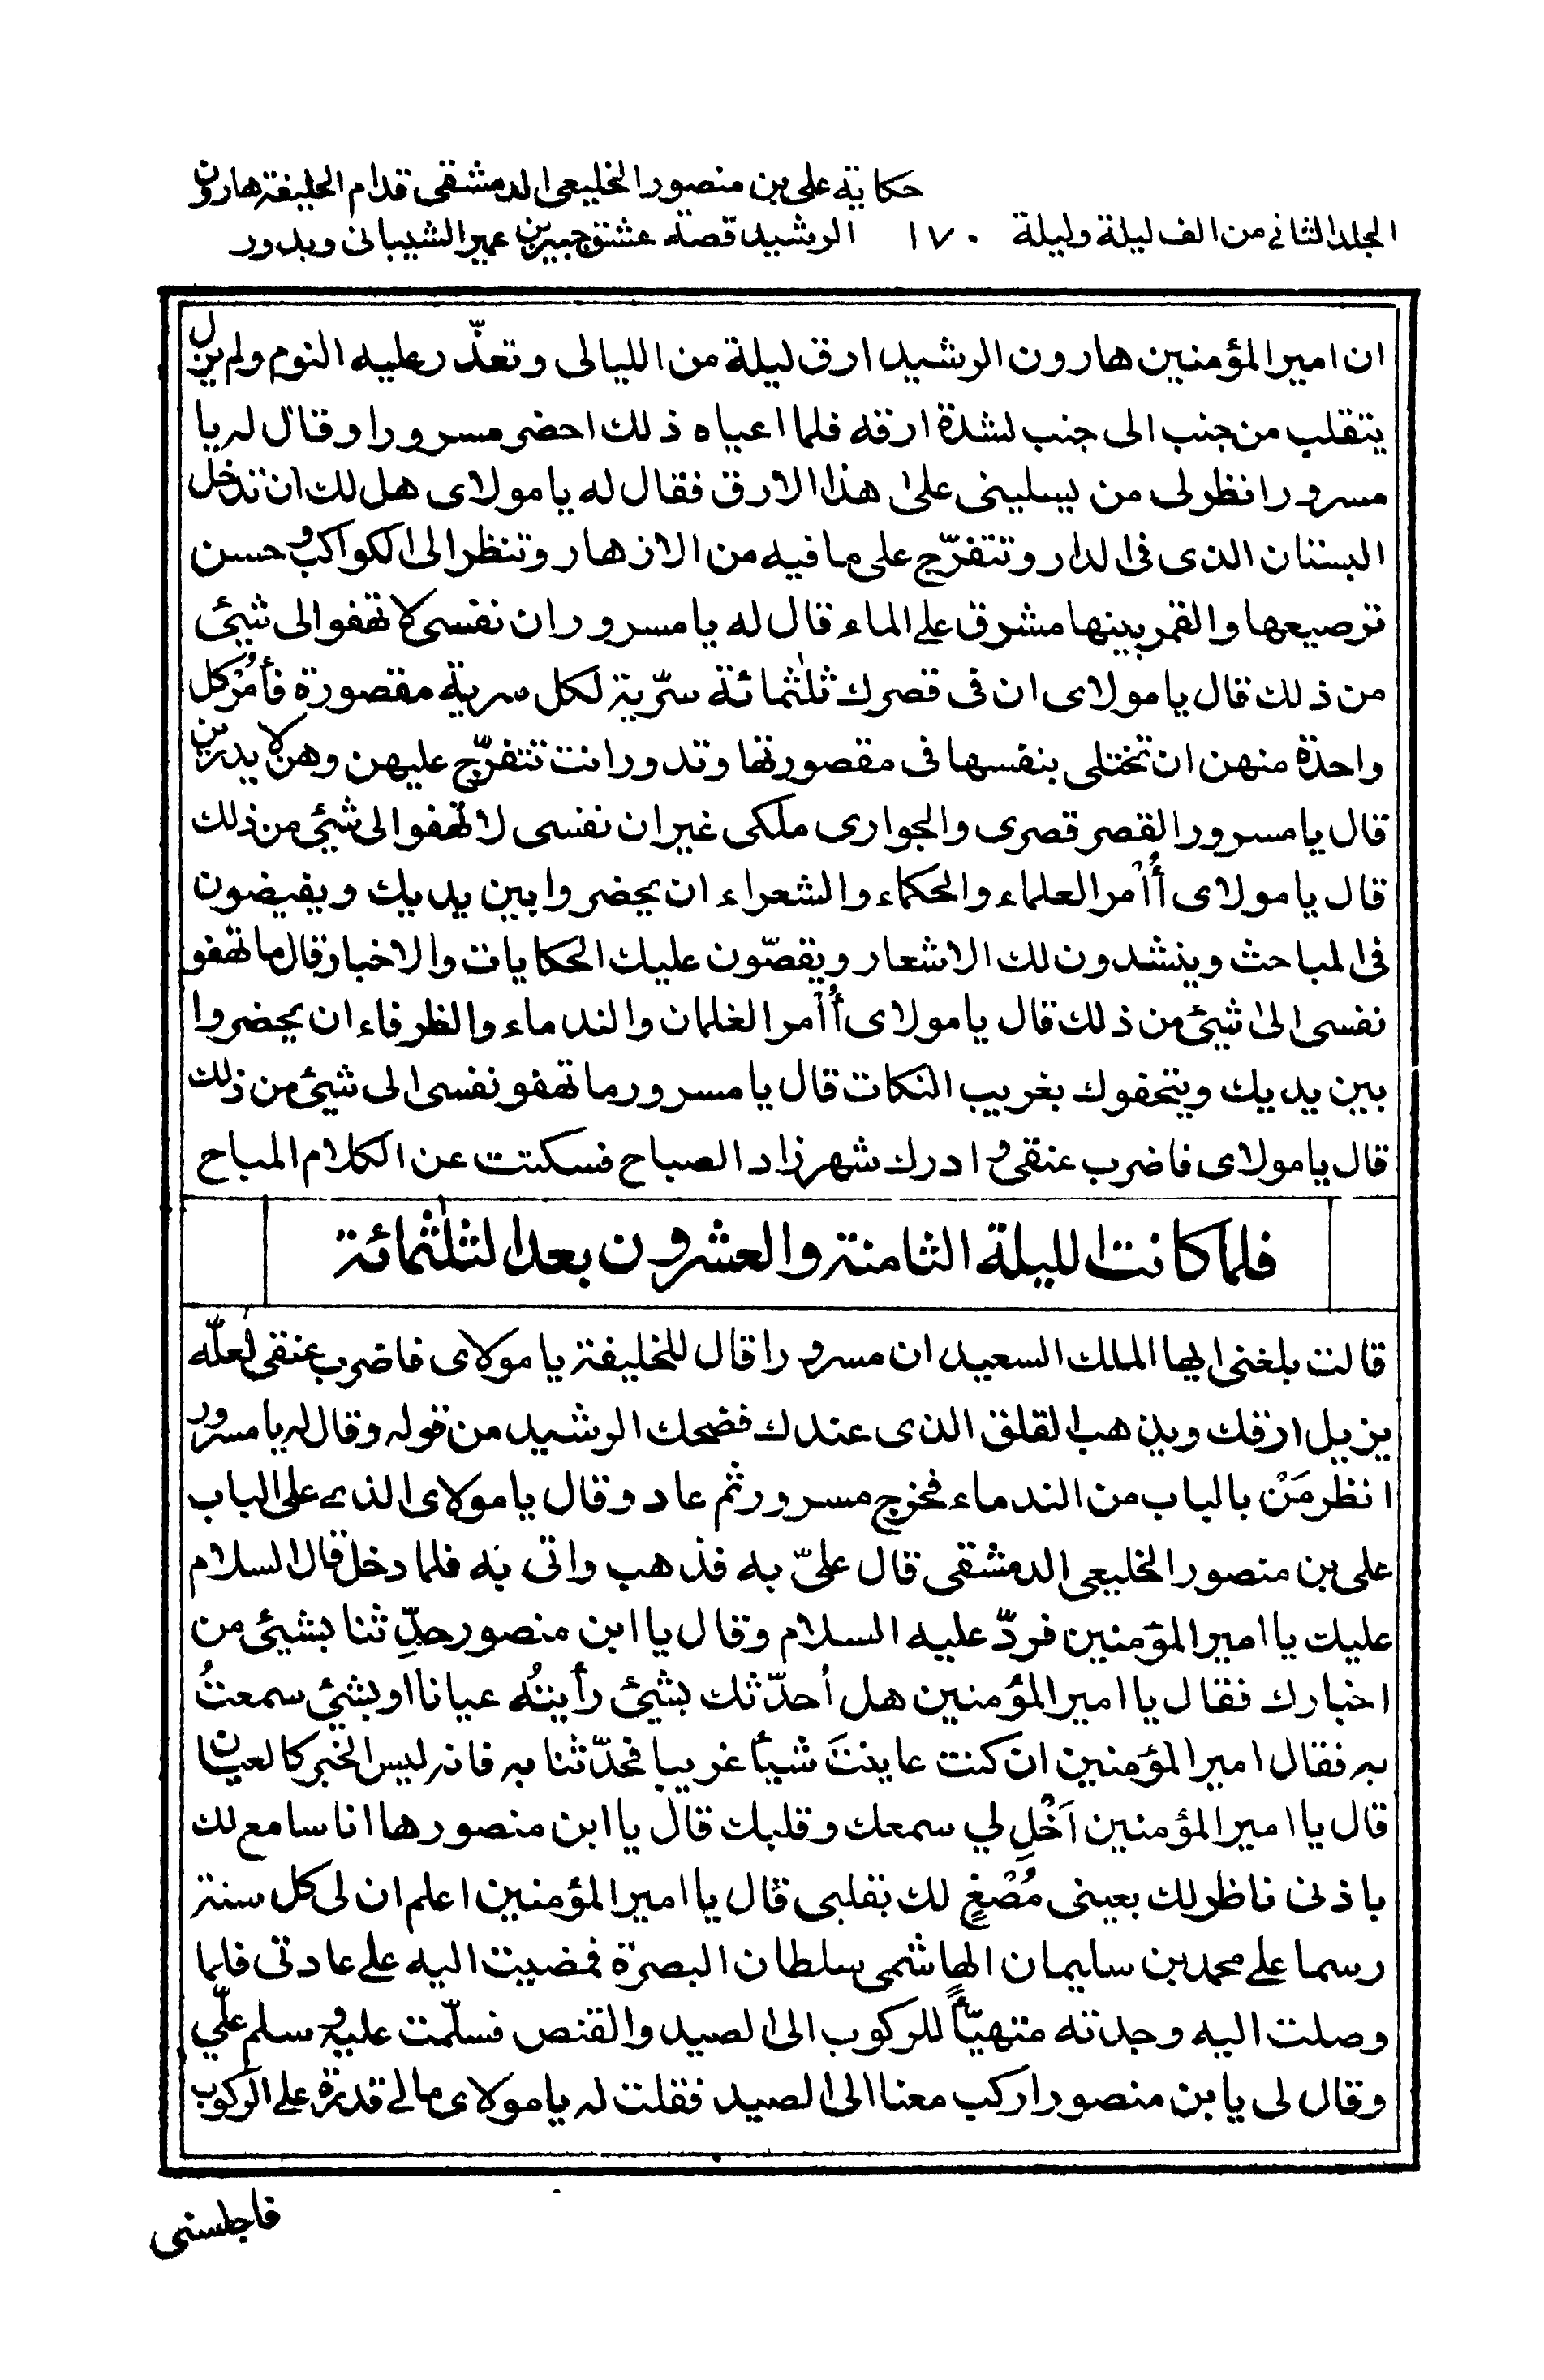 حكاية على بن منصور الخليعى الدمشقى قدام الخليفة هارون
المجلد الثانے من الف ليلة وليلة ١٧٠ الرشيد قصة عشق جبير بن عمير الشيبانى وبدور
ان امير المؤمنين هارون الرشيد ارق ليلة من الليالى وتعذّر عليه النوم ولم يزل
يتقلب من جنب الى جنب لشدة ارقه فلما اعياه ذلك احضر مسرورا وقال له يا
مسرور انظر لى من يسلينى على هذا الارق فقال له يا مولاى هل لك ان تدخل
البستان الذى فى الدار وتتفرّج على ما فيه من الازهار وتنظر الى الكواكب وحسن
ترصيعها والقمر بينها مشرق على الماء قال له يا مسرور ان نفسى لا تهفو الى شيئ
من ذلك قال يا مولاى ان فى قصرك ثلٰثمائة سرّية لكل سرية مقصورة فأمُرْ كل
واحدة منهن ان تختلى بنفسها فى مقصورتها وتدور انت تتفرّج عليهن وهن لا يدرين
قال يا مسرور القصر قصرى والجوارى ملكى غير ان نفسى لا تهفو الى شيئ من ذلك
قال يا مولاى أُاْمر العلماء والحكماء والشعراء ان يحضروا بين يديك ويفيضون
فى المباحث وينشدون لك الاشعار ويقصّون عليك الحكايات والاخبار قال ما تهفو
نفسى الى شيئ من ذلك قال يا مولاى أُاْمر الغلمان والندماء والظرفاء ان يحضروا
بين يديك ويتحفوك بغريب النكات قال يا مسرور ما تهفو نفسى الى شيئ من ذلك
قال يا مولاى فاضرب عنقى وادرك شهرزاد الصباح فسكتت عن الكلام المباح
فلما كانت الليلة الثامنة والعشرون بعد الثلٰثمائة
قالت بلغنى ايها الملك السعيد ان مسرورا قال للخليفة يا مولاى فاضرب عنقى لعلّه
يزيل ارقك ويذهب القلق الذى عندك فضحك الرشيد من قوله وقال له يا مسرور
انظر مَنْ بالباب من الندماء فخرج مسرور ثم عاد وقال يا مولاى الذے على الباب
على بن منصور الخليعى الدمشقى قال علىّ به فذهب واتى به فلما دخل قال السلام
عليك يا امير المؤمنين فردّ عليه السلام وقال يا ابن منصور حدِّثنا بشيئ من
اخبارك فقال يا امير المؤمنين هل اُحدّثك بشيئ رأيتُه عيانا او بشيئ سمعتُ
به فقال امير المؤمنين ان كنت عاينتَ شيأ غريبا فحدّثنا به فانه ليس الخبر كالعيان
قال يا امير المؤمنين اَخْلِ لي سمعك وقلبك قال يا ابن منصور ها انا سامع لك
باذنى ناظر لك بعينى مُصْغٍ لك بقلبى قال يا امير المؤمنين اعلم ان لى كل سنة
رسما علے محمد بن سليمان الهاشمى سلطان البصرة فمضيت اليه علے عادتى فلما
وصلت اليه وجدته متهيّأً للركوب الى الصيد والقنص فسلّمت عليه وسلم علّي
وقال لى يا بن منصور اركب معنا الى الصيد فقلت له يا مولاى مالے قدرة علے الركوب
فاجلسنى